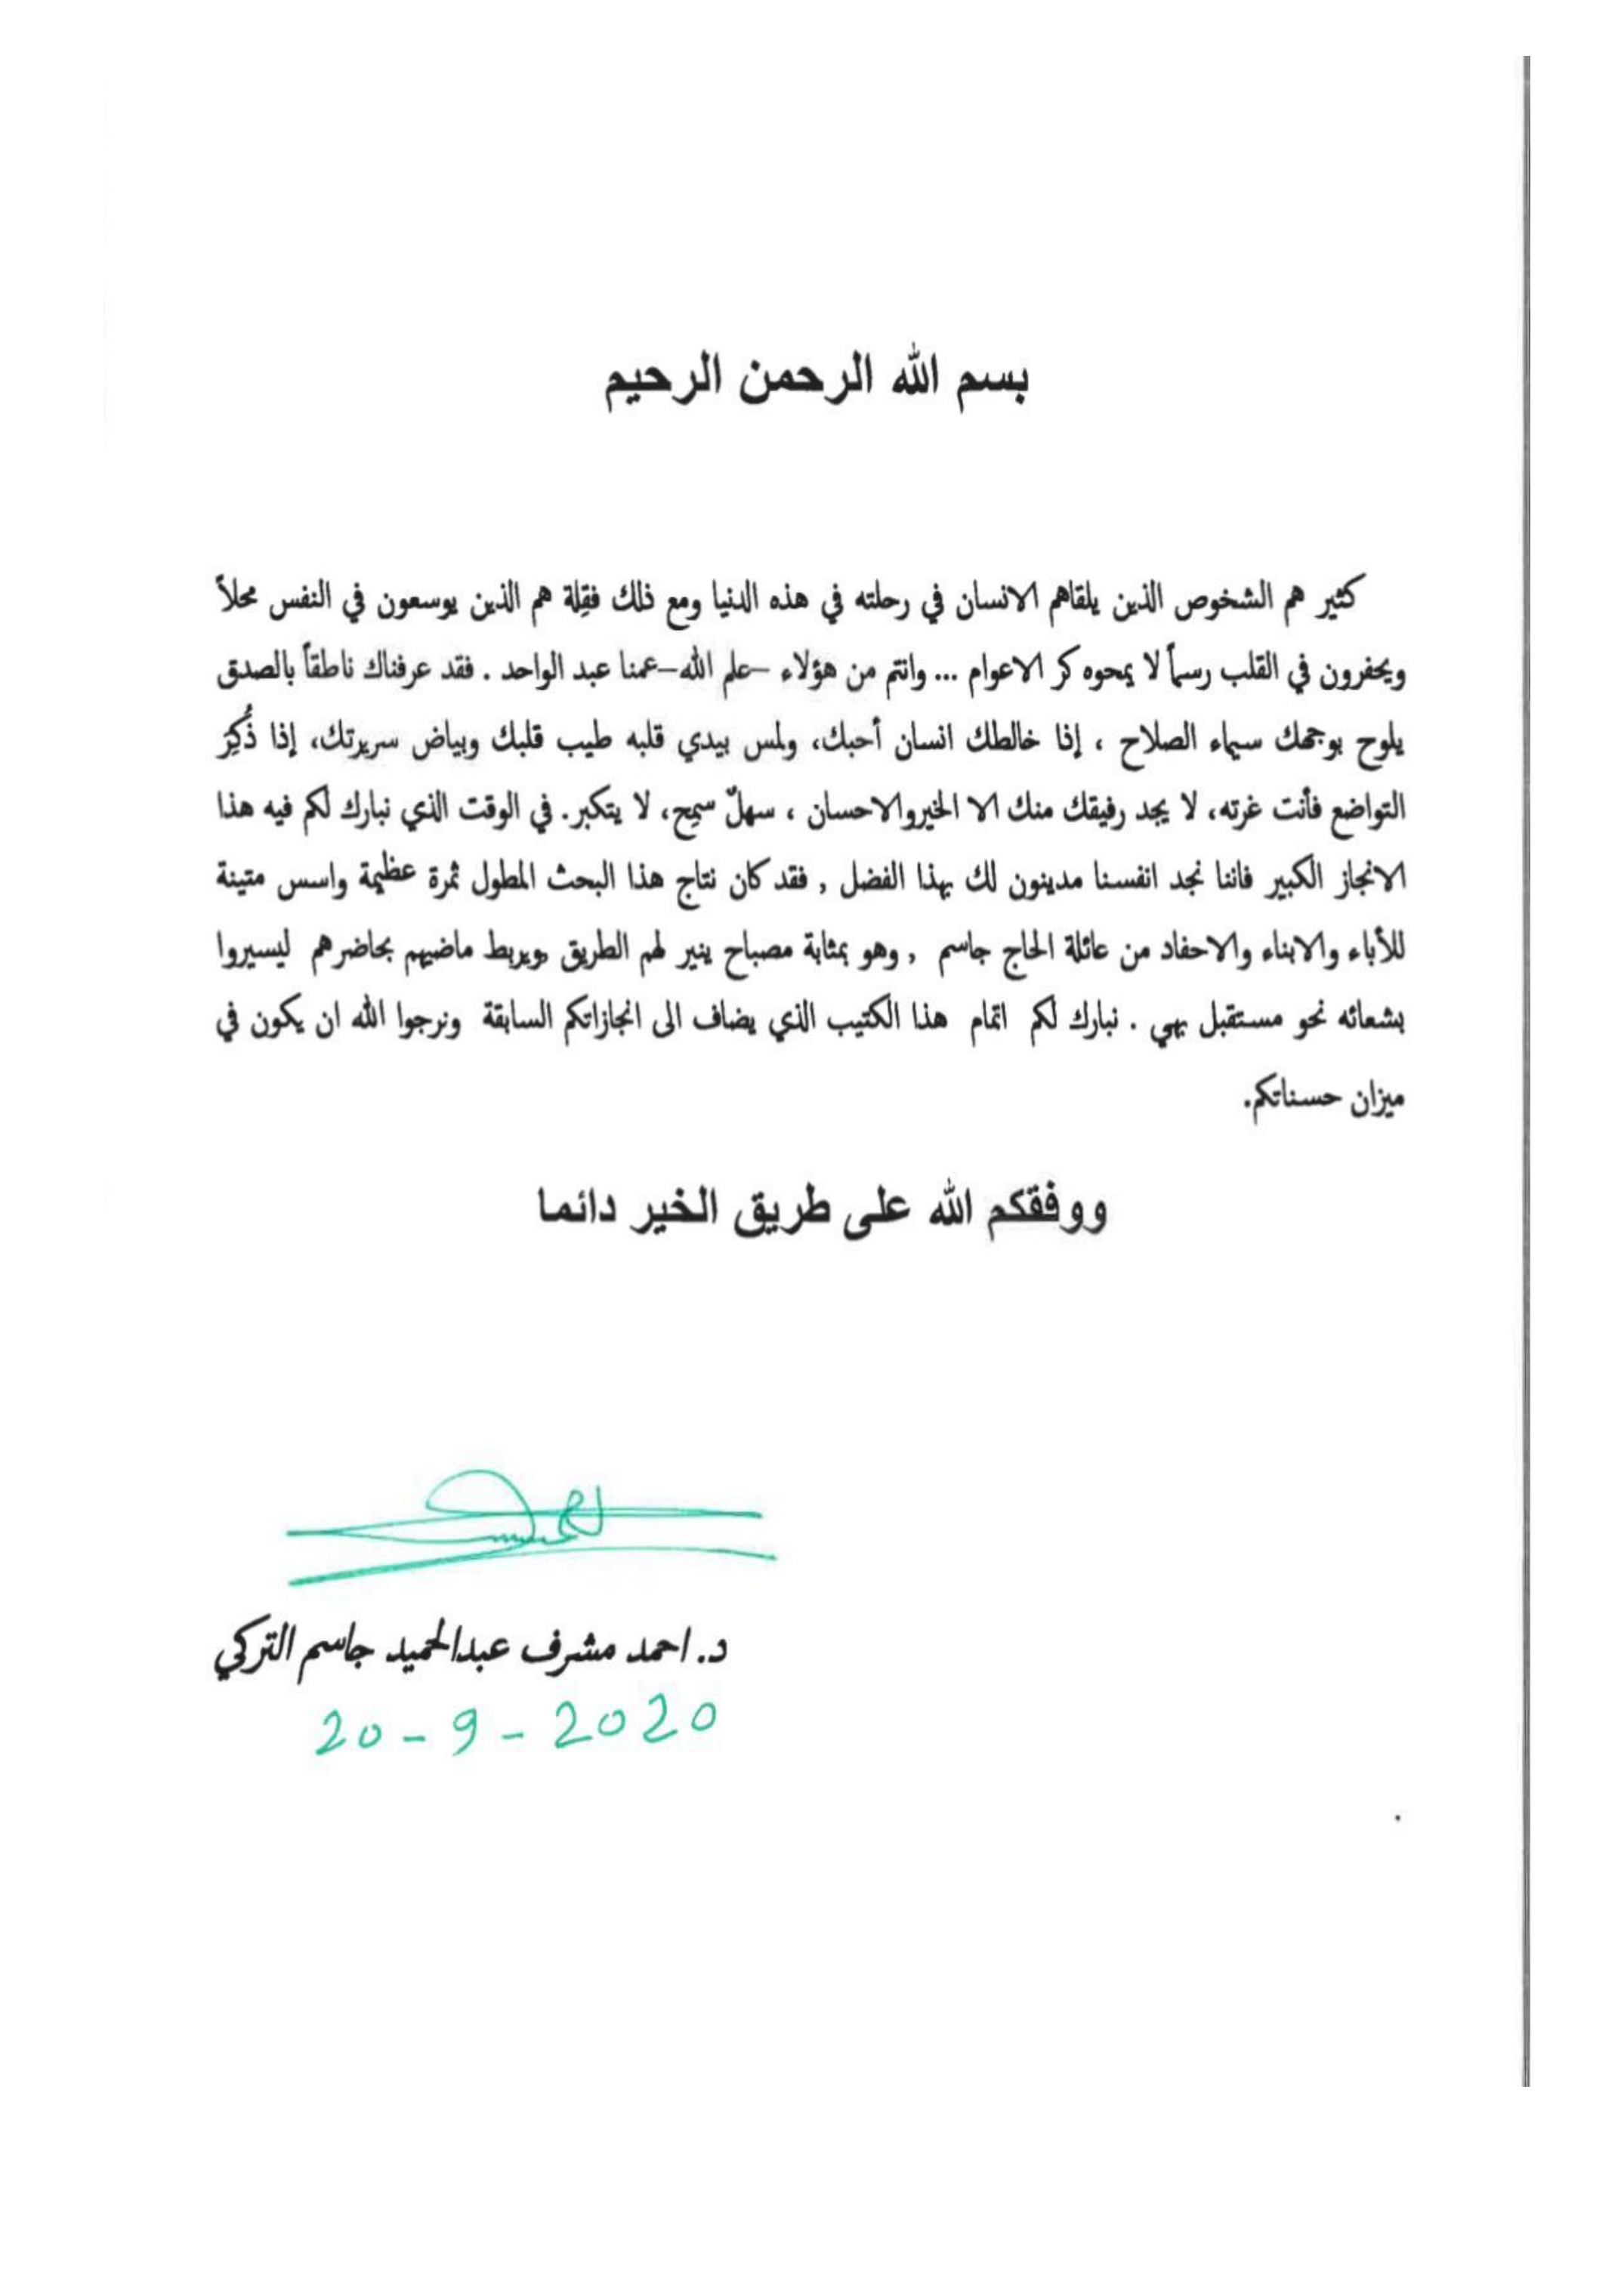 بسم الله الرحمن الرحيم
كثير هم الشخوص الذين يلقاهم الانسان في رحلته في هذه الدنيا ومع ذلك فقِلة هم الذين يوسعون في النفس محلاً
ويحفرون في القلب رسماً لا يمحوه كر الاعوام ... وانتم من هؤلاء –علم الله–عمنا عبد الواحد . فقد عرفناك ناطقاً بالصدق
يلوح بوجهك سيماء الصلاح ، إذا خالطك انسان أحبك، ولمس بيدي قلبه طيب قلبك وبياض سريرتك، إذا ذُكِرَ
التواضع فأنت غرته، لا يجد رفيقك منك الا الخيروالاحسان ، سهلٌ سمِح، لا يتكبر. في الوقت الذي نبارك لكم فيه هذا
الانجاز الكبير فاننا نجد انفسنا مدينون لك بهذا الفضل , فقد كان نتاج هذا البحث المطول ثمرة عظيمة واسس متينة
للأباء والابناء والاحفاد من عائلة الحاج جاسم , وهو بمثابة مصباح ينير لهم الطريق ,ويربط ماضيهم بحاضرهم ليسيروا
بشعائه نحو مستقبل بهي . نبارك لكم اتمام هذا الكتيب الذي يضاف الى انجازاتكم السابقة ونرجوا الله ان يكون في
ميزان حسناتكم.
ووفقكم الله على طريق الخير دائما
د. احمد مشرف عبدالحميد جاسم التركي
20-9-2020